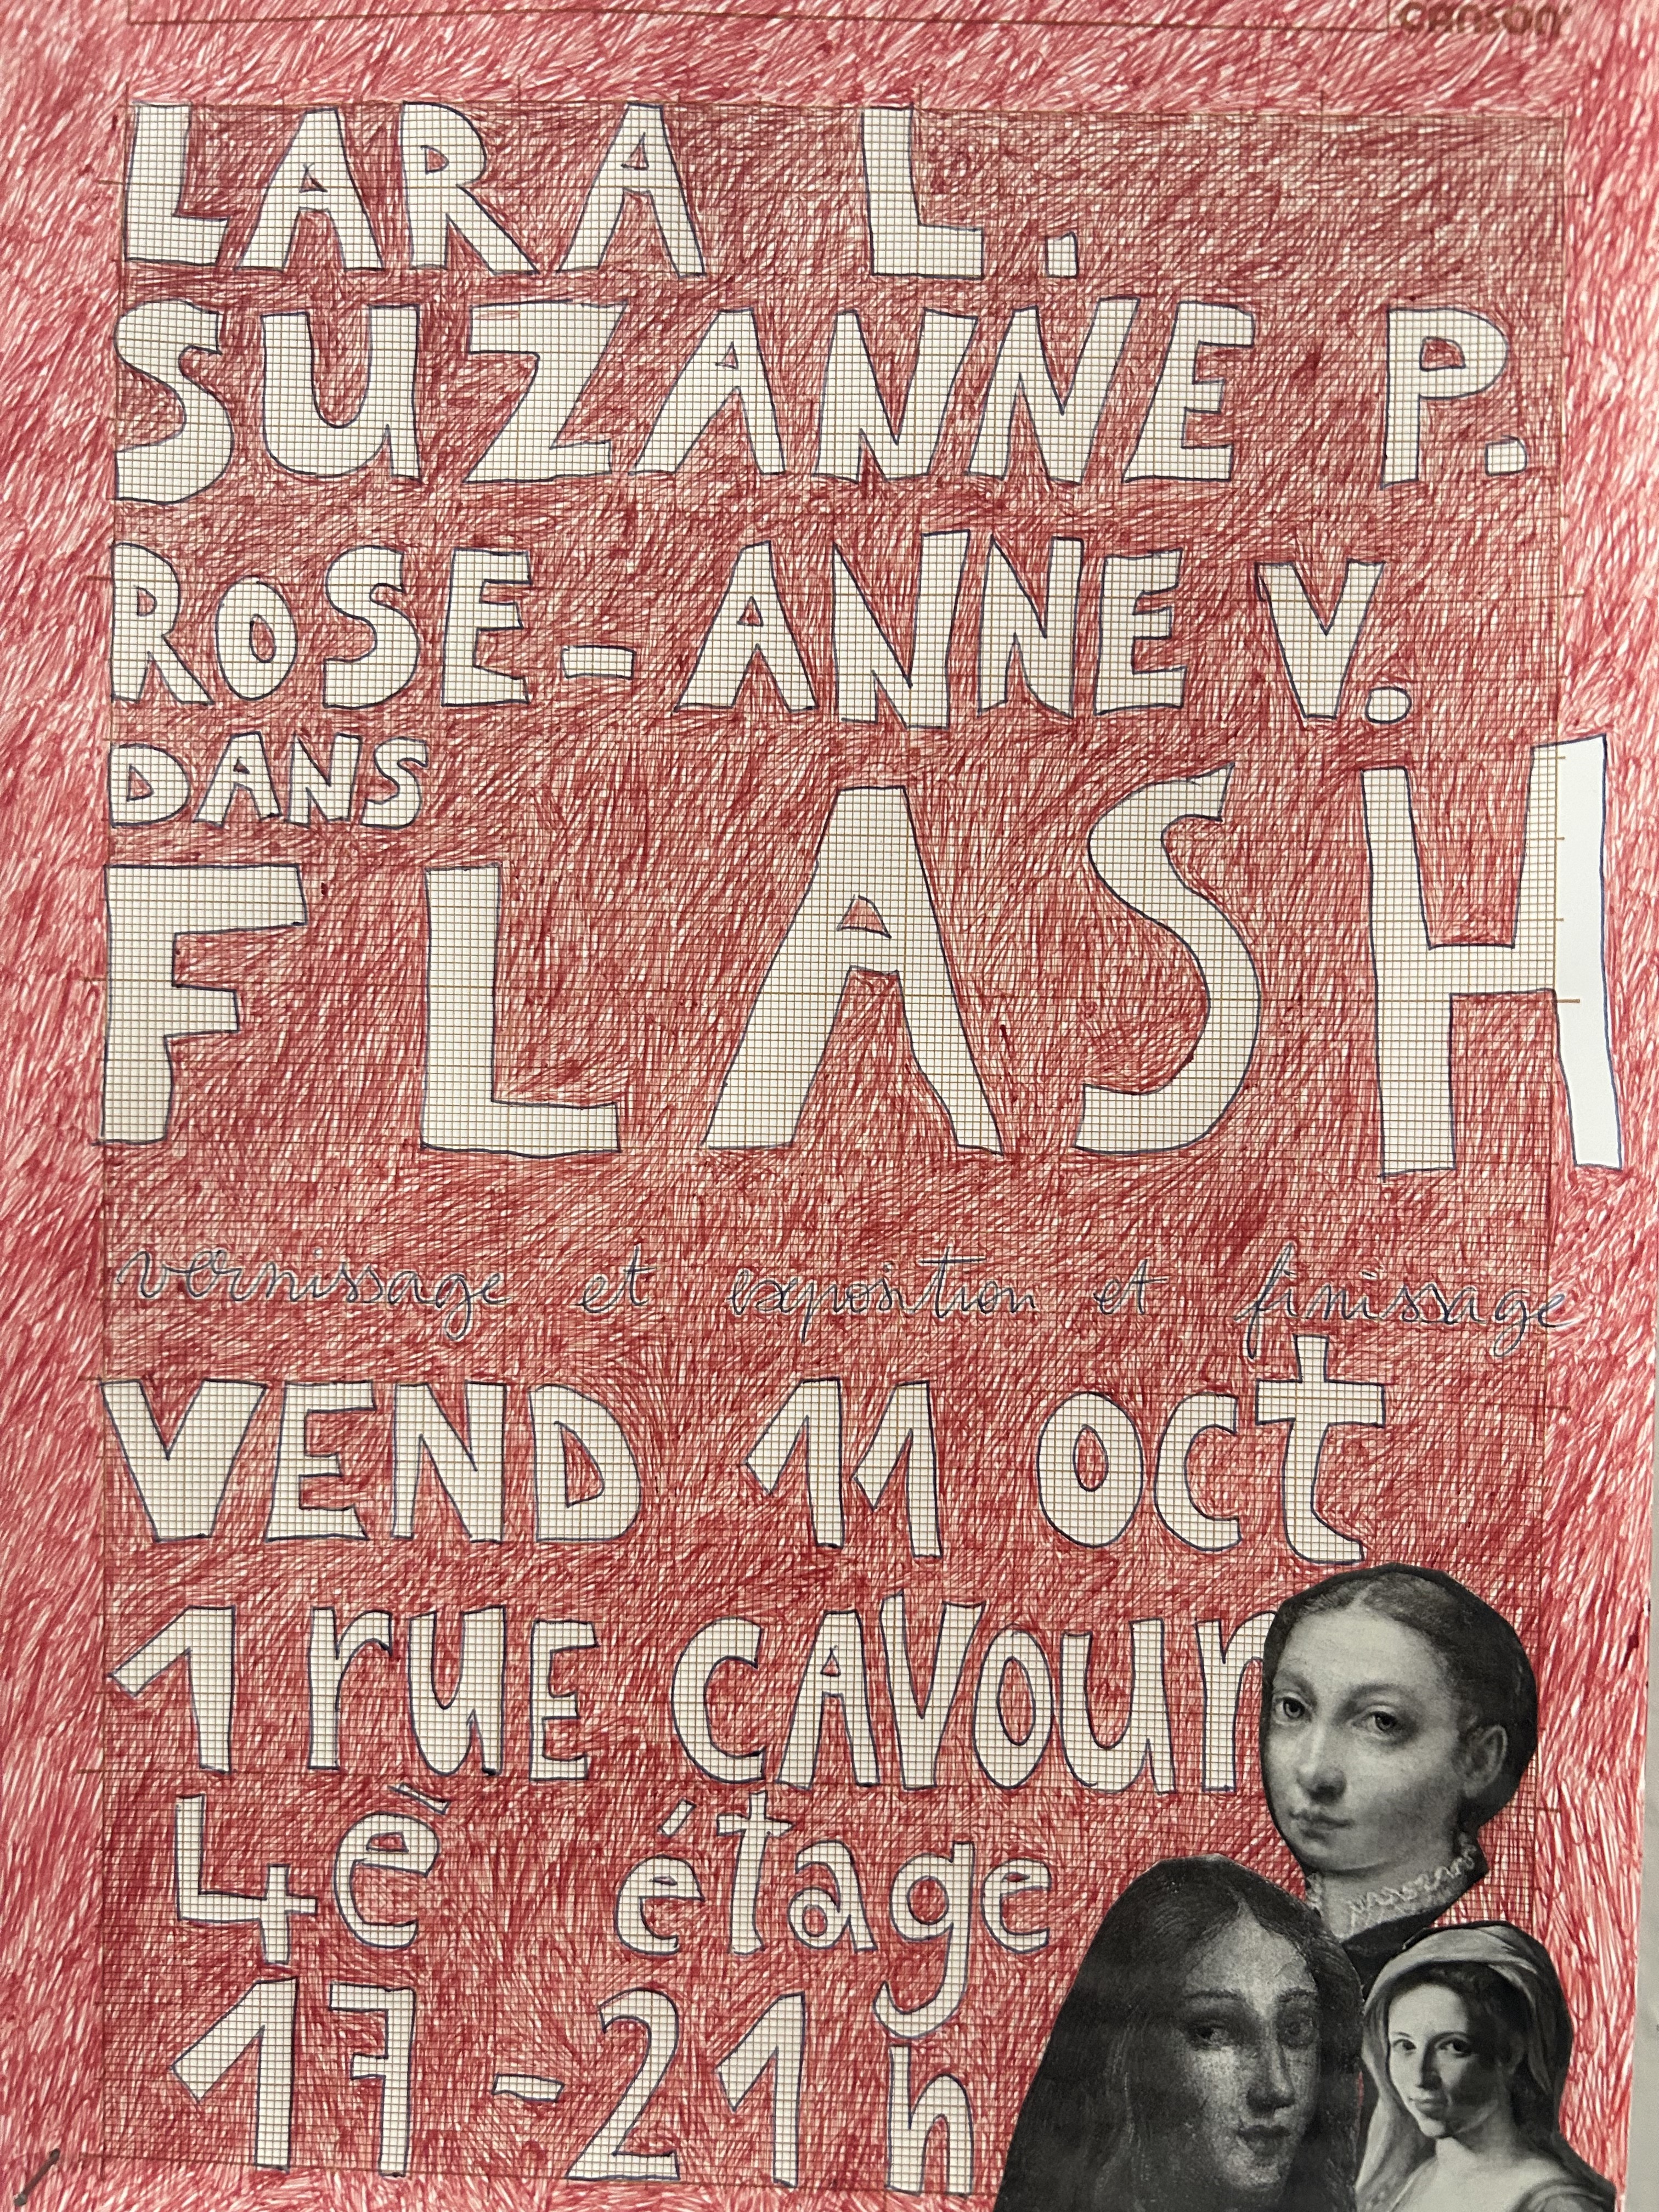 CANSON
LARA L.
SUZANNE P.
ROSE-ANNE V.
DANS
FLASH
vernissage et exposition et finissage
VEND 11 OCt
1 rUE CAVOUr
4è étage
17-21h